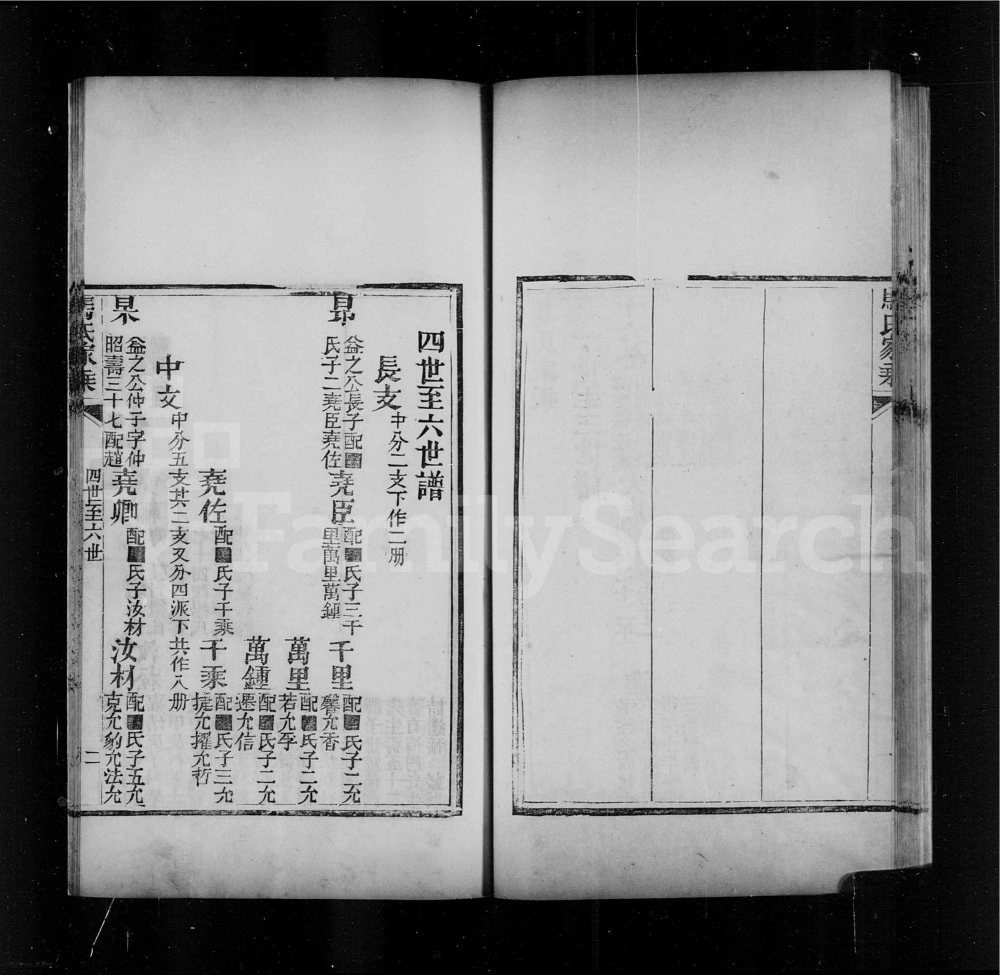 四世至六世譜
長支 中分二支下作二册
昂 益之公長子配■氏子二堯臣堯佐
堯臣 配■氏子三千里萬里萬鍾
千里 配■氏子二允馨允香
萬里 配■氏子二允若允孚
萬鍾 配■氏子二允遷允信
堯佐 配■氏子千乘
千乘 配■氏子三允捷允擢允哲
中支 中分五支其二支又分四派下共作八册
杲 益之公仲子字仲昭壽三十七配趙
堯卿 配■氏子汝材
汝材 配■氏子五允克允豹允法允
馬氏家乘
四世至六世
二
馬氏家乘
FamilySearch